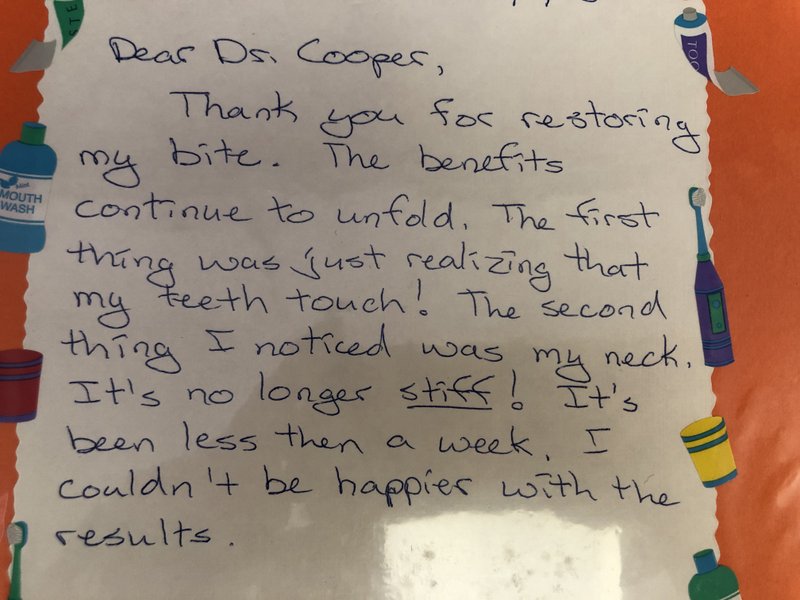 Dear Dr. Cooper,
Thank you for restoring
my bite. The benefits
continue to unfold. The first
thing was just realizing that
my teeth touch! The second
thing I noticed was my neck.
It's no longer stiff! It's
been less then a week. I
couldn't be happier with the
results.
STE
TOO
Mint
MOUTH
WASH